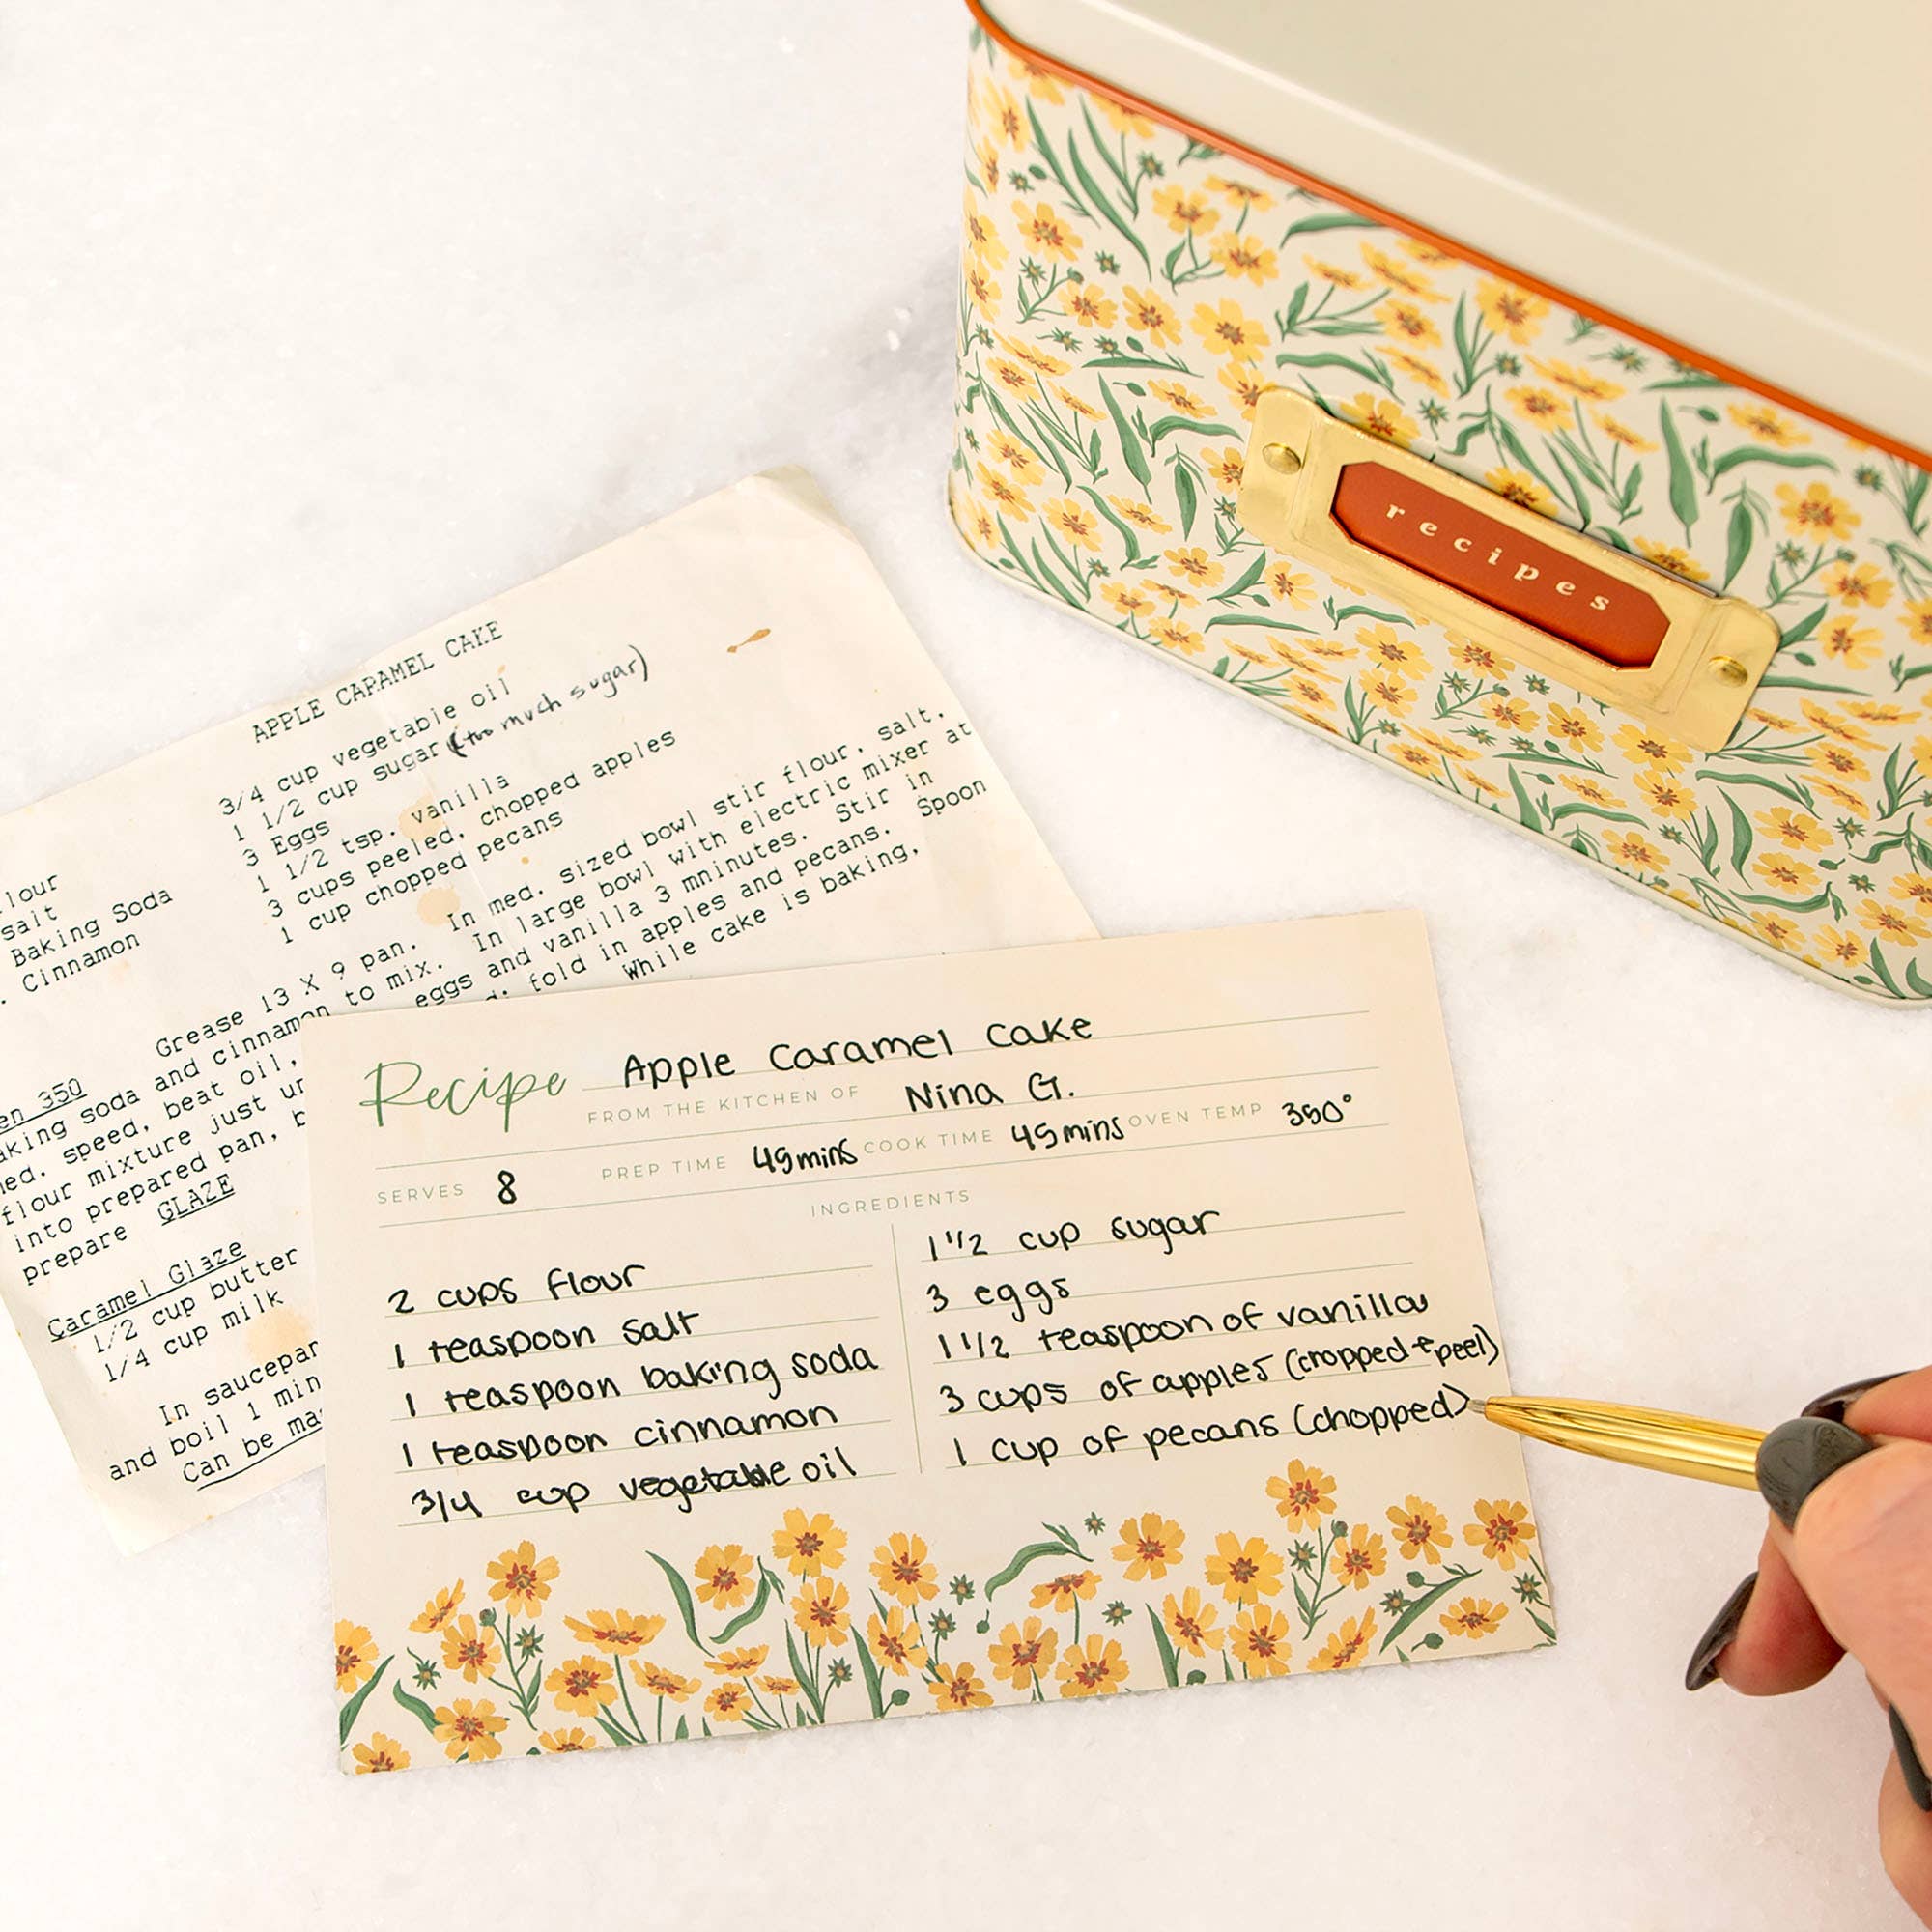 recipes
APPLE CARAMEL CAKE
3/4 cup vegetable oil
1 1/2 cup sugar (too much sugar)
3 Eggs
1 1/2 tsp. vanilla
3 cups peeled, chopped apples
1 cup chopped pecans
lour
salt
Baking Soda
. Cinnamon
en 350
Grease 13 X 9 pan. In med. sized bowl stir flour, salt,
aking soda and cinnamon to mix. In large bowl with electric mixer at
ed. speed, beat oil, eggs and vanilla 3 mninutes. Stir in
flour mixture just fold in apples and pecans. Spoon
into prepared pan, While cake is baking,
prepare GLAZE
Caramel Glaze
1/2 cup butter
1/4 cup milk
In saucepan
and boil 1 min
Can be ma
Recipe Apple Caramel Cake
FROM THE KITCHEN OF Nina G.
SERVES 8 PREP TIME 45mins COOK TIME 45mins OVEN TEMP 350°
INGREDIENTS
2 cups flour
1 teaspoon salt
1 teaspoon baking soda
1 teaspoon cinnamon
3/4 cup vegetable oil
1 1/2 cup sugar
3 eggs
1 1/2 teaspoon of vanilla
3 cups of apples (cropped + peel)
1 cup of pecans (chopped)